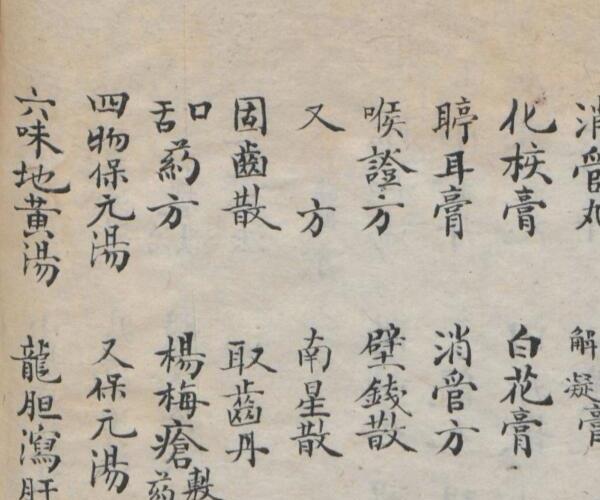 消管丸　解凝膏
化核膏　白花膏
聤耳膏　消管方
喉證方　壁錢散
又方　南星散
固齒散　取齒丹
口舌药方　楊梅瘡敷药
四物保元湯　又保元湯
六味地黄湯　龍胆瀉肝